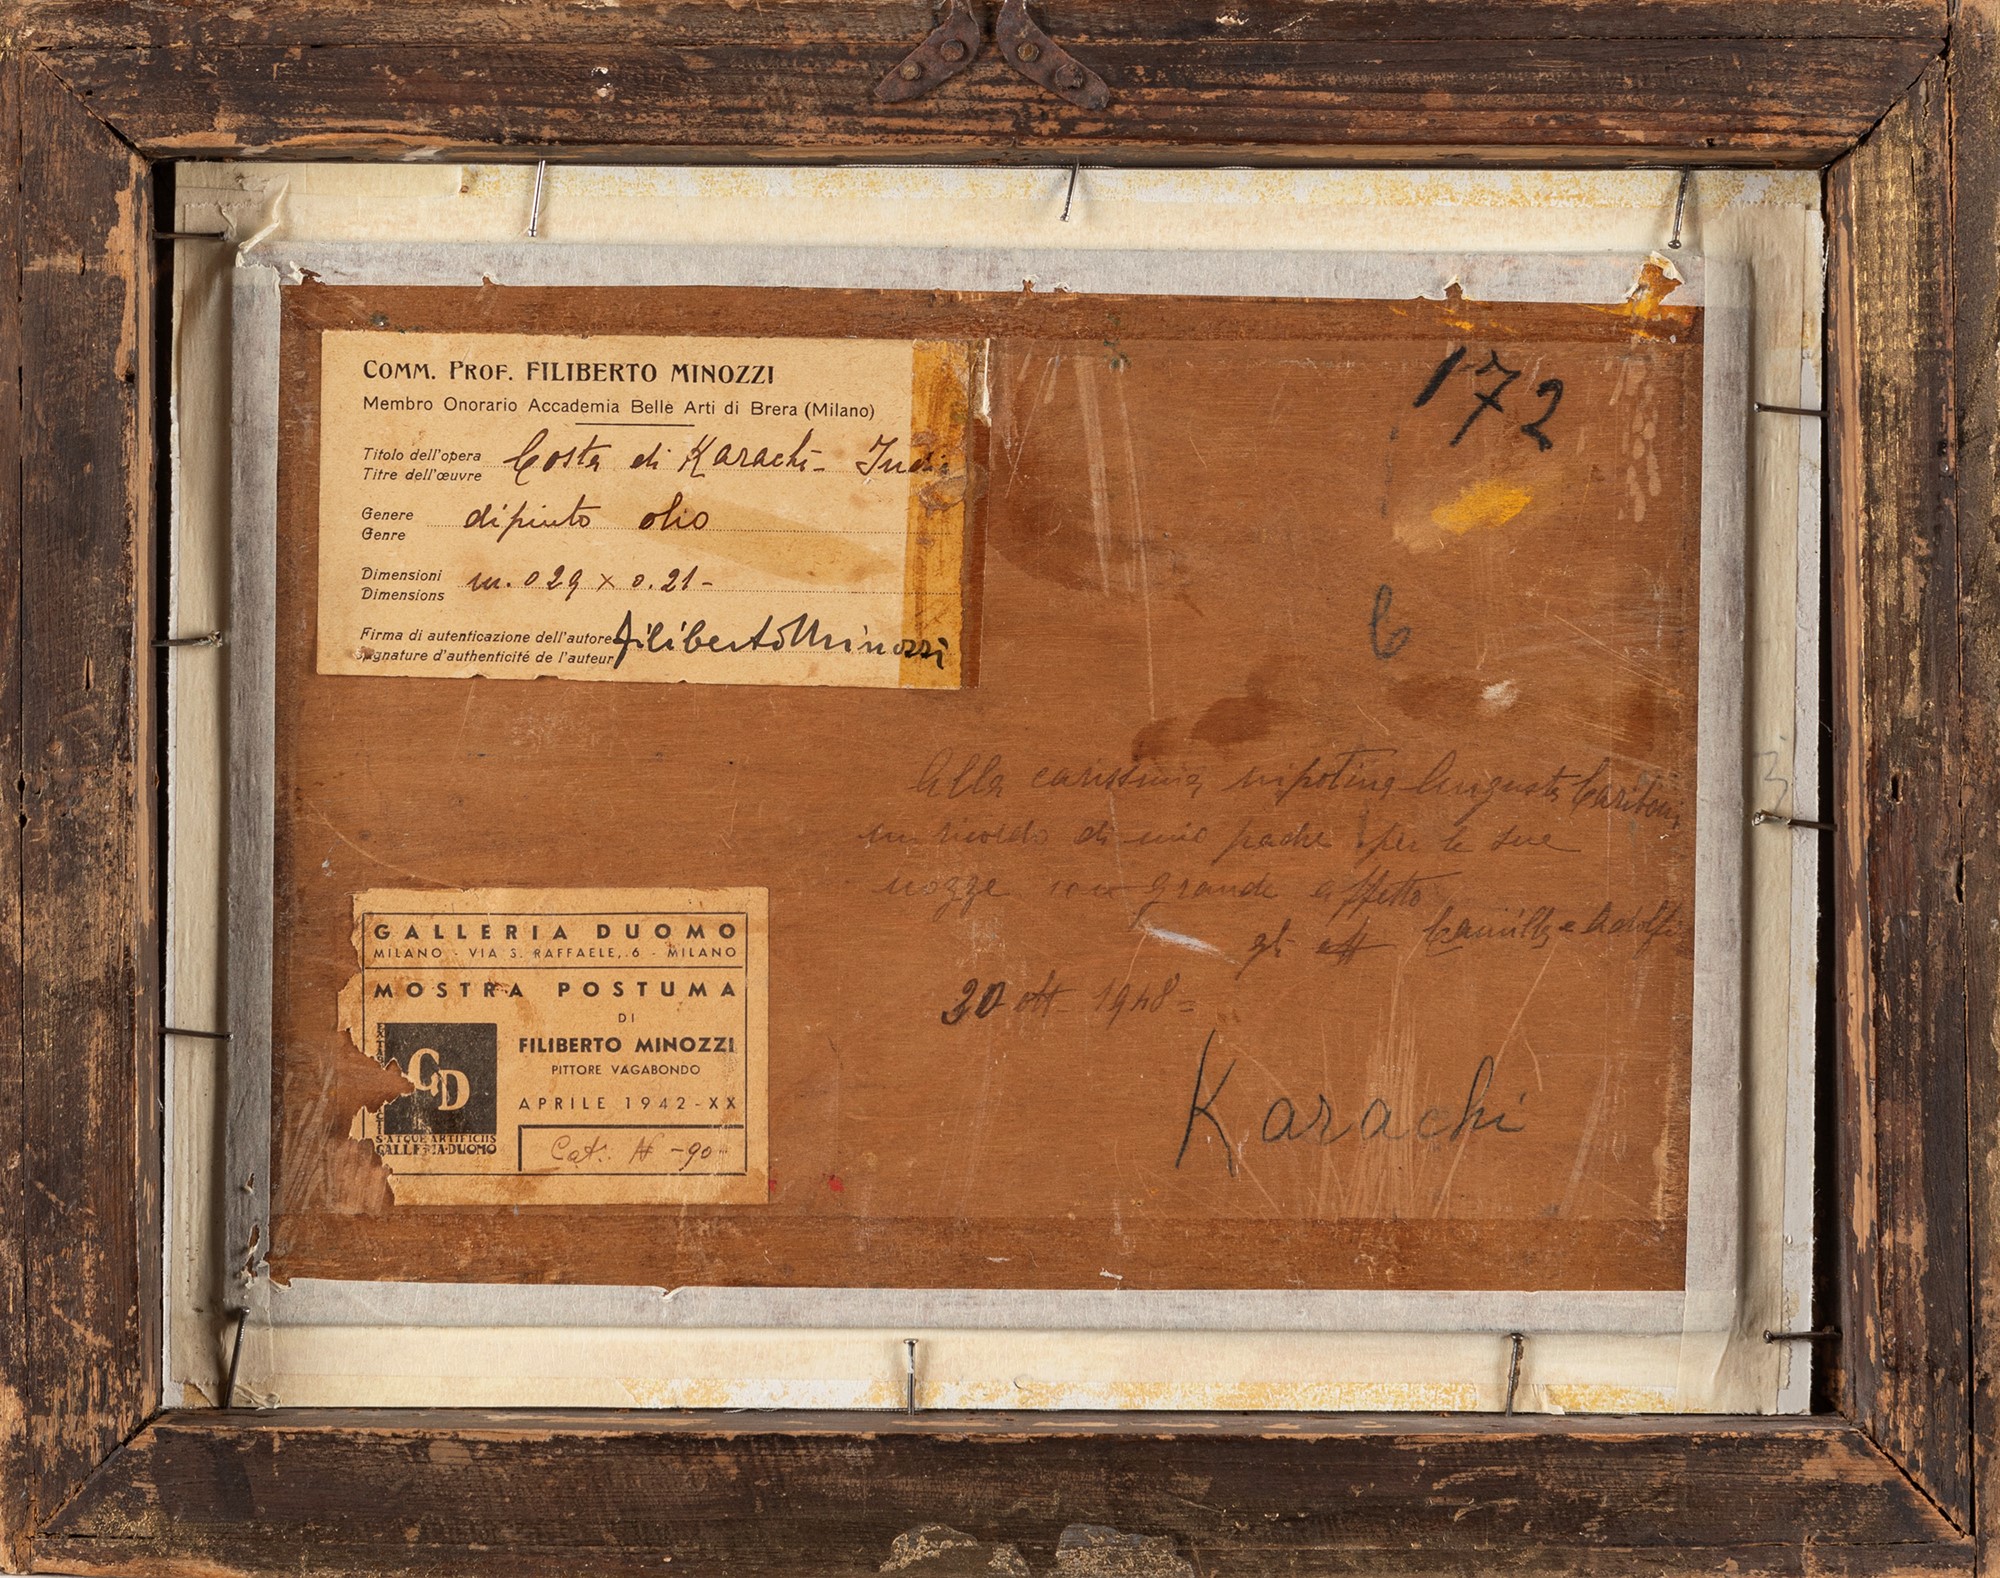 COMM. PROF. FILIBERTO MINOZZI
Membro Onorario Accademia Belle Arti di Brera (Milano)
Titolo dell'opera Costa di Karachi - Indie
Titre dell'œuvre
Genere dipinto olio
Genre
Dimensioni m. 029 x 0.21 -
Dimensions
Firma di autenticazione dell'autore Filiberto Minozzi
Signature d'authenticité de l'auteur
172
Alla carissima nipotina Augusta Cariboni
un ricordo di mio padre per le sue
nozze con grande affetto
gli aff Camilla e Adolfo
20 ott 1948 =
Karachi
GALLERIA DUOMO
MILANO - VIA S. RAFFAELE, 6 - MILANO
MOSTRA POSTUMA
DI
FILIBERTO MINOZZI
PITTORE VAGABONDO
APRILE 1942-XX
GD
SATQUE ARTIFICIIS
GALLERIA·DUOMO
Cat. N -90-